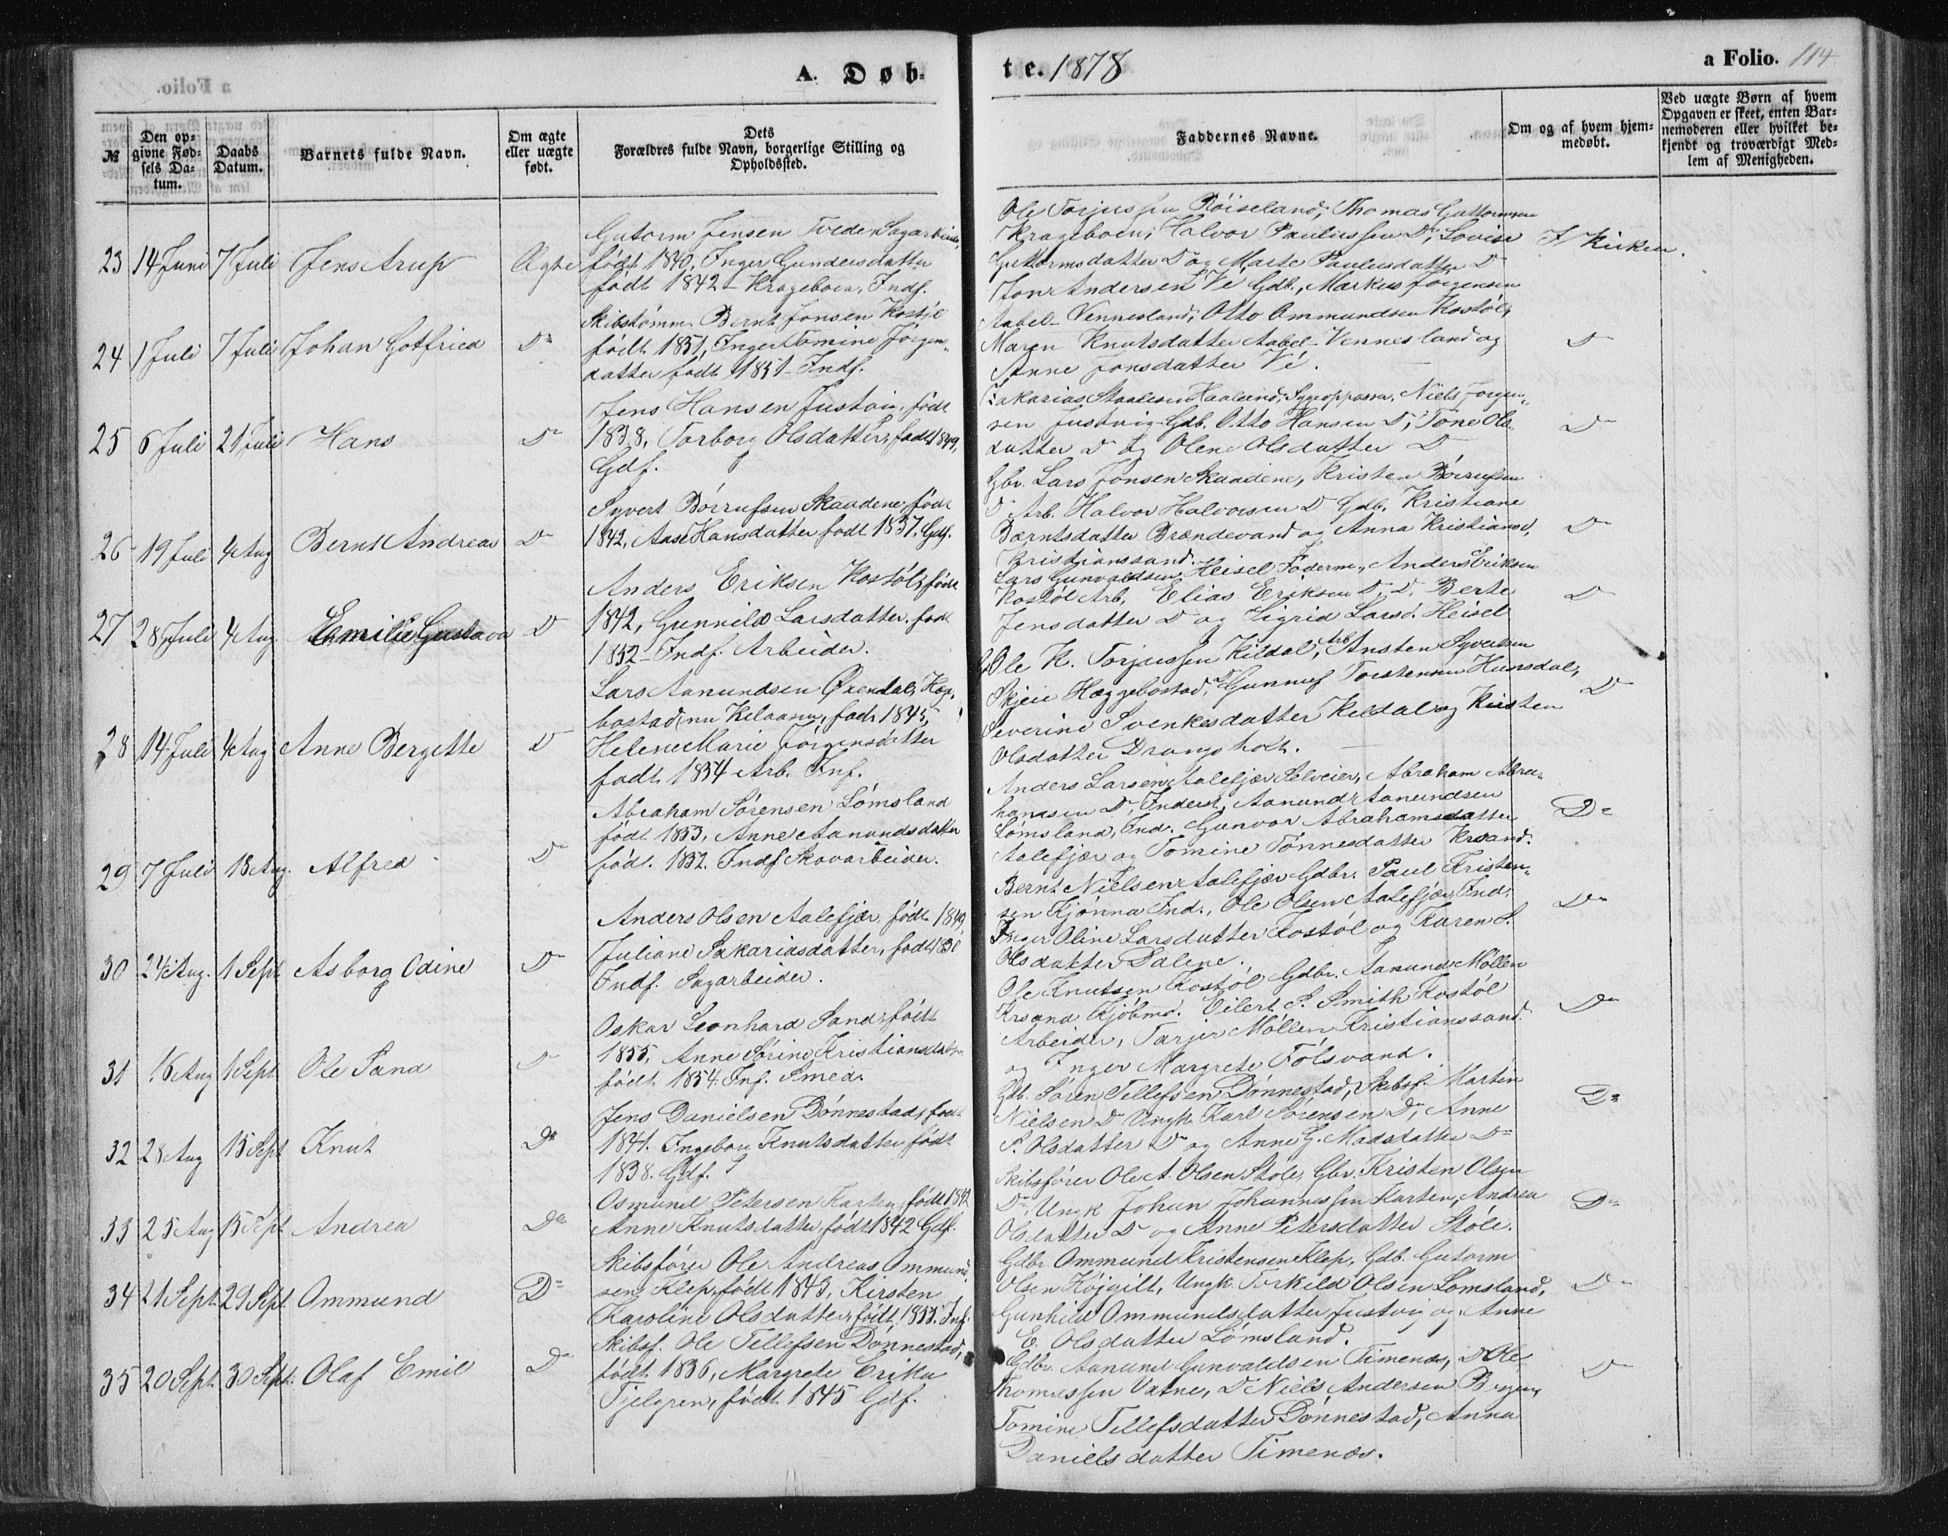 A. Døbte. 1878
a Folio. 114
№
Den opgivne Fødsels Datum.
Daabs Datum.
Barnets fulde Navn.
Om ægte eller uægte født.
Dets Forældres fulde Navn, borgerlige Stilling og Opholdssted.
Faddernes Navne.
Om og af hvem hjemmedøbt.
Ved uægte Børn af hvem Opgaven er skeet, enten Barnemoderen eller hvilket bekjendt og troværdigt Medlem af Menigheden.
23 14 Juni 7 Juli Jens Arup Ægte
Gutorm Jensen Tvede, Sagarbeider,
født 1840, Inger Gundersdatter
født 1842 - Krageboen, Indf.
Ole Torjussen Röiseland, Thomas Guttormsen
Krageboen, Halvor Paulussen Do, Lovise
Guttormsdatter D og Marte Paulusdatter D
I Kirken.
24 1 Juli 7 Juli Johan Gotfried Do
Skibstømm. Bernt Jonsen Kostøl
født 1851, Inger Tomine Jörgens-
datter født 1851 - Indf.
Jon Andersen Ve Gdb., Markus Jörgensen
Aabel - Vennesland, Otto Ommundsen Kostöl,
Maren Knutsdatter Aabel - Vennesland og
Anne Jonsdatter Ve.
D
25 6 Juli 21 Juli Hans Do
Jens Hansen Justvig, født
1838, Torborg Olsdatter, født 1849,
Gdf.
Zakarias Staalesen Haaland, Sygeopperen, Niels Jörgen-
sen Justvig Gdb. Otto Hansen D, Tone Ols-
datter D og Olene Olsdatter D
D
26 19 Juli 4 Aug Bernt Andreas Do
Syvert Börrufsen Skaadene, født
1842, Aase Hansdatter født 1837. Gdf.
Gbr. Lars Jonsen Skaadene, Kristen Börrufsen
D Arb. Halvor Halvorsen D Gdb. Kristiane
Bærntsdatter Brændevand og Anna Kristiansd,
Kristianssand.
D
27 28 Juli 4 Aug Emilie Gustava D
Anders Eriksen Kostöl, født
1842, Gunnild Larsdatter, født
1852 - Indf. Arbeider.
Lars Gunvaldsen Heisel Föderm., Anders Eriksen
Kostöl Arb. Elias Eriksen D, D. Berte
Jensdatter D og Sigrid Larsd. Heisel
D
28 14 Juli 4 Aug Anne Bergette D
Lars Aanundsen Øxendal, Hæg-
bostad, nu Kilaane, født 1845,
Helene Marie Jörgensdatter
født 1834 Arb. Inf.
Ole K. Torjussen Kildal, Arb. Ansten Syvertsen
Skjeie Hæggebostad, Gunnuf Torstensen Hunsdal,
Severine Svenkesdatter Kildal og Kirsten
Olsdatter Drangsholt.
D
29 7 Juli 18 Aug. Alfred D
Abraham Sörensen Lömsland
født 1853, Anne Aanundsdatter
født. 1832. Indf Skovarbeider.
Anders Larsen Aalefjær Selveier, Abraham Abra-
hamsen D, Inderst, Aanund Aanundsen
Lömsland, Ind. Gunvor Abrahamsdatter
Aalefjær og Tomine Tönnesdatter Krsand.
D
30 24 Aug. 1 Sept Asborg Odine Do
Anders Olsen Aalefjær, født 1849,
Juliane Sakariasdatter, født 1850
Indf. Sagarbeider.
Bernt Nielsen Aalefjær Gdbr. Paul Kristen-
sen Kjönna Ind., Ole Olsen Aalefjær Ind.
Inger Oline Larsdatter Kostöl og Karen S.
Olsdatter Dalene.
Do
31 16 Aug 1 Sept Ole Sand D
Oskar Leonhard Sand, født
1855, Anne Sörine Kristiansdatter
født 1854. Inf. Smed.
Ole Knutsen Kostöl Gdbr. Aanund Möllen
Krsand Kjöbmd. Eilert S. Smith Kostöl
Arbeider, Tarjer Möllen Kristianssand
og Inger Margrete Fölsvand.
Do
32 28 Aug 15 Sept Knut Do
Jens Danielsen Dönnestad, født
1841. Ingebor Knutsdatter født
1838. Gdf.
Gdb. Sören Tellefsen Dönnestad, Skibsf. Martin
Nielsen D Ungk. Karl Sörensen D, Anne
S. Olsdatter D og Anne G. Madsdatter D
D
33 25 Aug 15 Sept Andrea Do
Osmund Petersen Karten, født 1842
Anne Knutsdatter, født 1842 Gdf.
Skibsförer Ole A. Olsen Stöle, Gbr. Kristen Olsen
D, Ungk Johan Johannessen Karten, Andrea
Olsdatter D og Anne Petersdatter Stöle.
D
34 21 Sept 29 Sept. Ommund D
Skibsförer Ole Andreas Ommund-
sen Klep, født 1843, Kirsten
Karoline Olsdatter, født 1855. Inf.
Gdbr Ommund Kristensen Klep, Gdb. Gutorm
Olsen Höjgilt, Ungk. Torkild Olsen Lömsland,
Gunhild Ommundsdatter Justvig og Anne
E. Olsdatter Lömsland.
D
35 20 Sept. 30 Sept. Olaf Emil D
Skibsf. Ole Tellefsen Dönnestad,
født 1836, Margrete Erika
Tjelgren, født 1845 Gdf.
Gdbr. Aanund Gunvaldsen Timenæs, D Ole
Thomassen Vatne, D Niels Andersen
Tomine Tellefsdatter Dönnestad, Anna
Danielsdatter Timenæs.
D